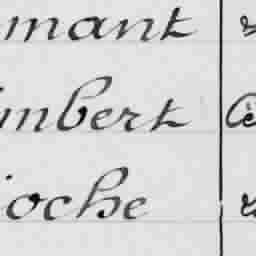 mant
mbert Cé
oche